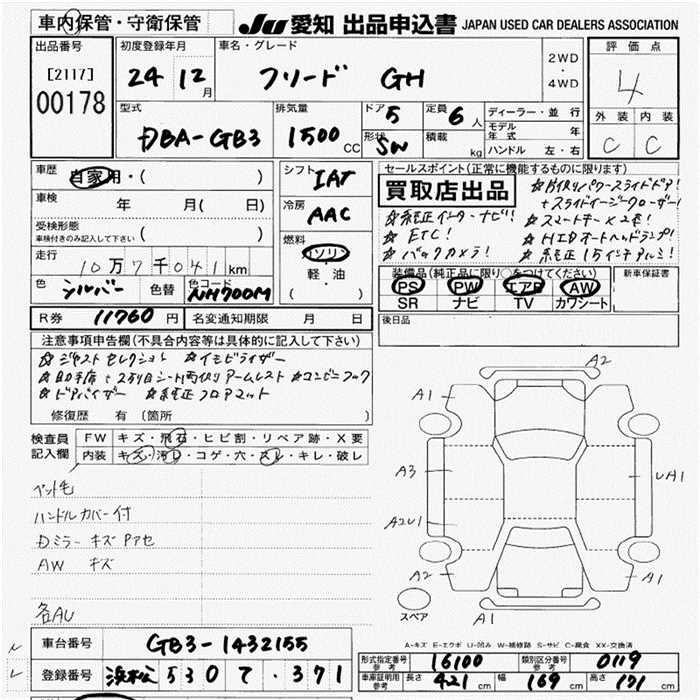 車内保管・守衛保管 JU 愛知 出品申込書 JAPAN USED CAR DEALERS ASSOCIATION
出品番号 初度登録年月 車名・グレード 評価点
[2117] 24 12月 フリード GH 2WD・4WD 4
00178 外装 内装
型式 排気量 ドア 5 定員 6人 ディーラー・並行 C C
DBA-GB3 1500CC 形状 SW 積載 kg モデル年式 年
ハンドル 左・右
車歴 自家用・( ) シフト IAT セールスポイント(正常に機能するものに限ります)
買取店出品 ☆片側パワースライドドア!
車検 年 月( 日) 冷房 AAC +スライドイージークローザー!
☆純正インターナビ! ☆スマートキー×2ケ!
受検形態 車検付きのみ記入して下さい ( ) ☆ETC! ☆HIDオートヘッドランプ!
燃料 ガソリン ☆バックカメラ! ☆純正15インチアルミ!
走行 10万7千041km 軽・油 ( )
装備品(純正品に限り○をつけてください) 新車保証書
色 シルバー 色替 色コード NH700M PS PW エアB AW
SR ナビ TV カワシート
R券 11760円 名変通知期限 月 日 後日品
注意事項申告欄(不具合内容等は具体的に記入して下さい)
☆ジャストセレクション ☆イモビライザー
☆助手席+2列目シート両側アームレスト ☆コンビニフック
☆ドアバイザー ☆純正フロアマット
修復歴 有 (箇所
検査員記入欄 FW キズ・飛石・ヒビ割・リペア跡・X要
内装 キズ・汚レ・コゲ・穴・スレ・キレ・破レ
A2
A1
A3 UA1
A2U1
A2 A1
A1
スペア
ペット毛
ハンドルカバー付
Dミラー キズ Pアセ
AW キズ
各AU
A-キズ E-エクボ U-凹み W-補修跡 S-サビ C-腐食 XX-交換済
車台番号 GB3-1432155
登録番号 浜松 530 て・371
形式指定番号 参考 16100 類別区分番号 参考 0119
車庫証明用 参考 長さ 421cm 幅 169cm 高さ 171cm